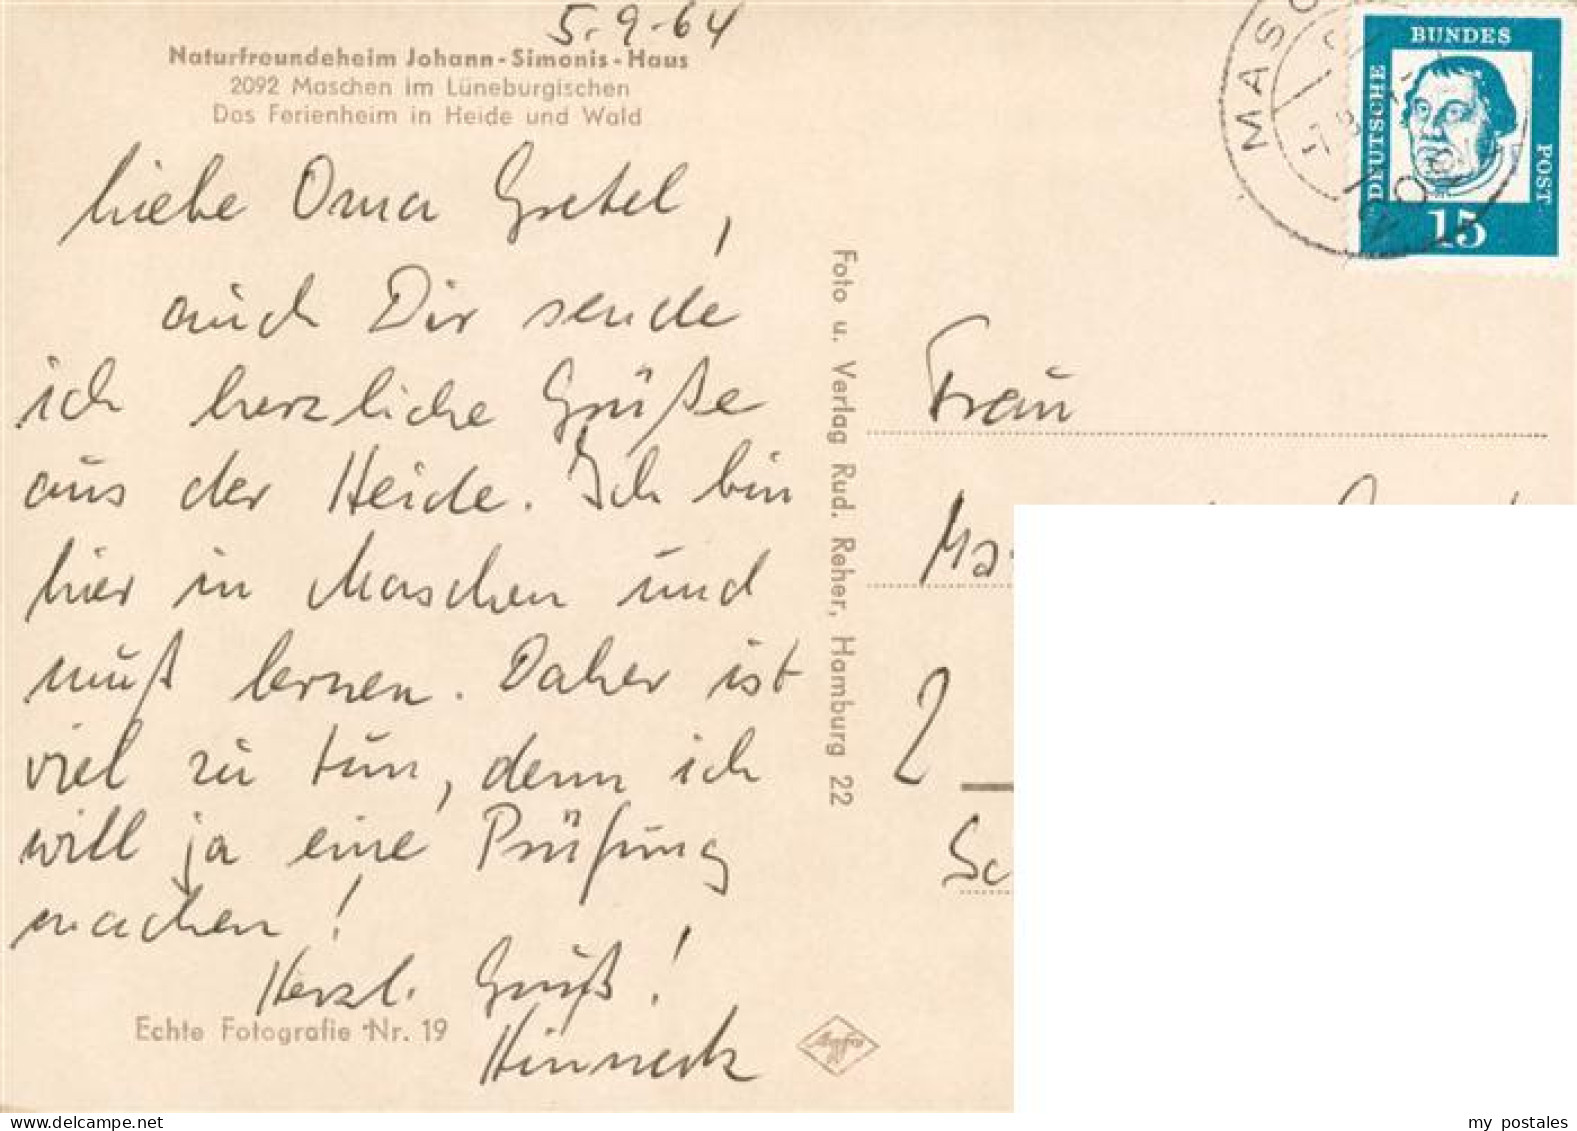 5.9.64
Naturfreundeheim Johann-Simonis-Haus
2092 Maschen im Lüneburgischen
Das Ferienheim in Heide und Wald
Liebe Oma Gretel,
auch Dir sende
ich herzliche Grüße
aus der Heide. Ich bin
hier in Maschen und
muß lernen. Daher ist
viel zu tun, denn ich
will ja eine Prüfung
machen!
Herzl. Gruß!
Hinnerk
Echte Fotografie Nr. 19
Foto u. Verlag Rud. Reher, Hamburg 22
Agfa
MASC
DEUTSCHE
BUNDES
POST
15
Frau
2
my postales